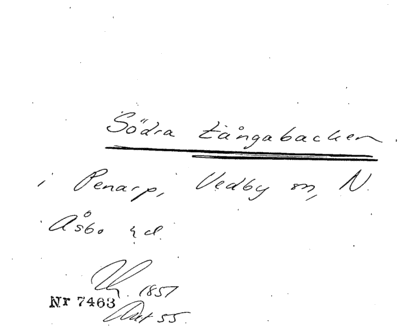 Södra Långabacken
i Penarp, Vedby sn, N.
Åsbo hd.
1851
Nr 7463
Akt 55